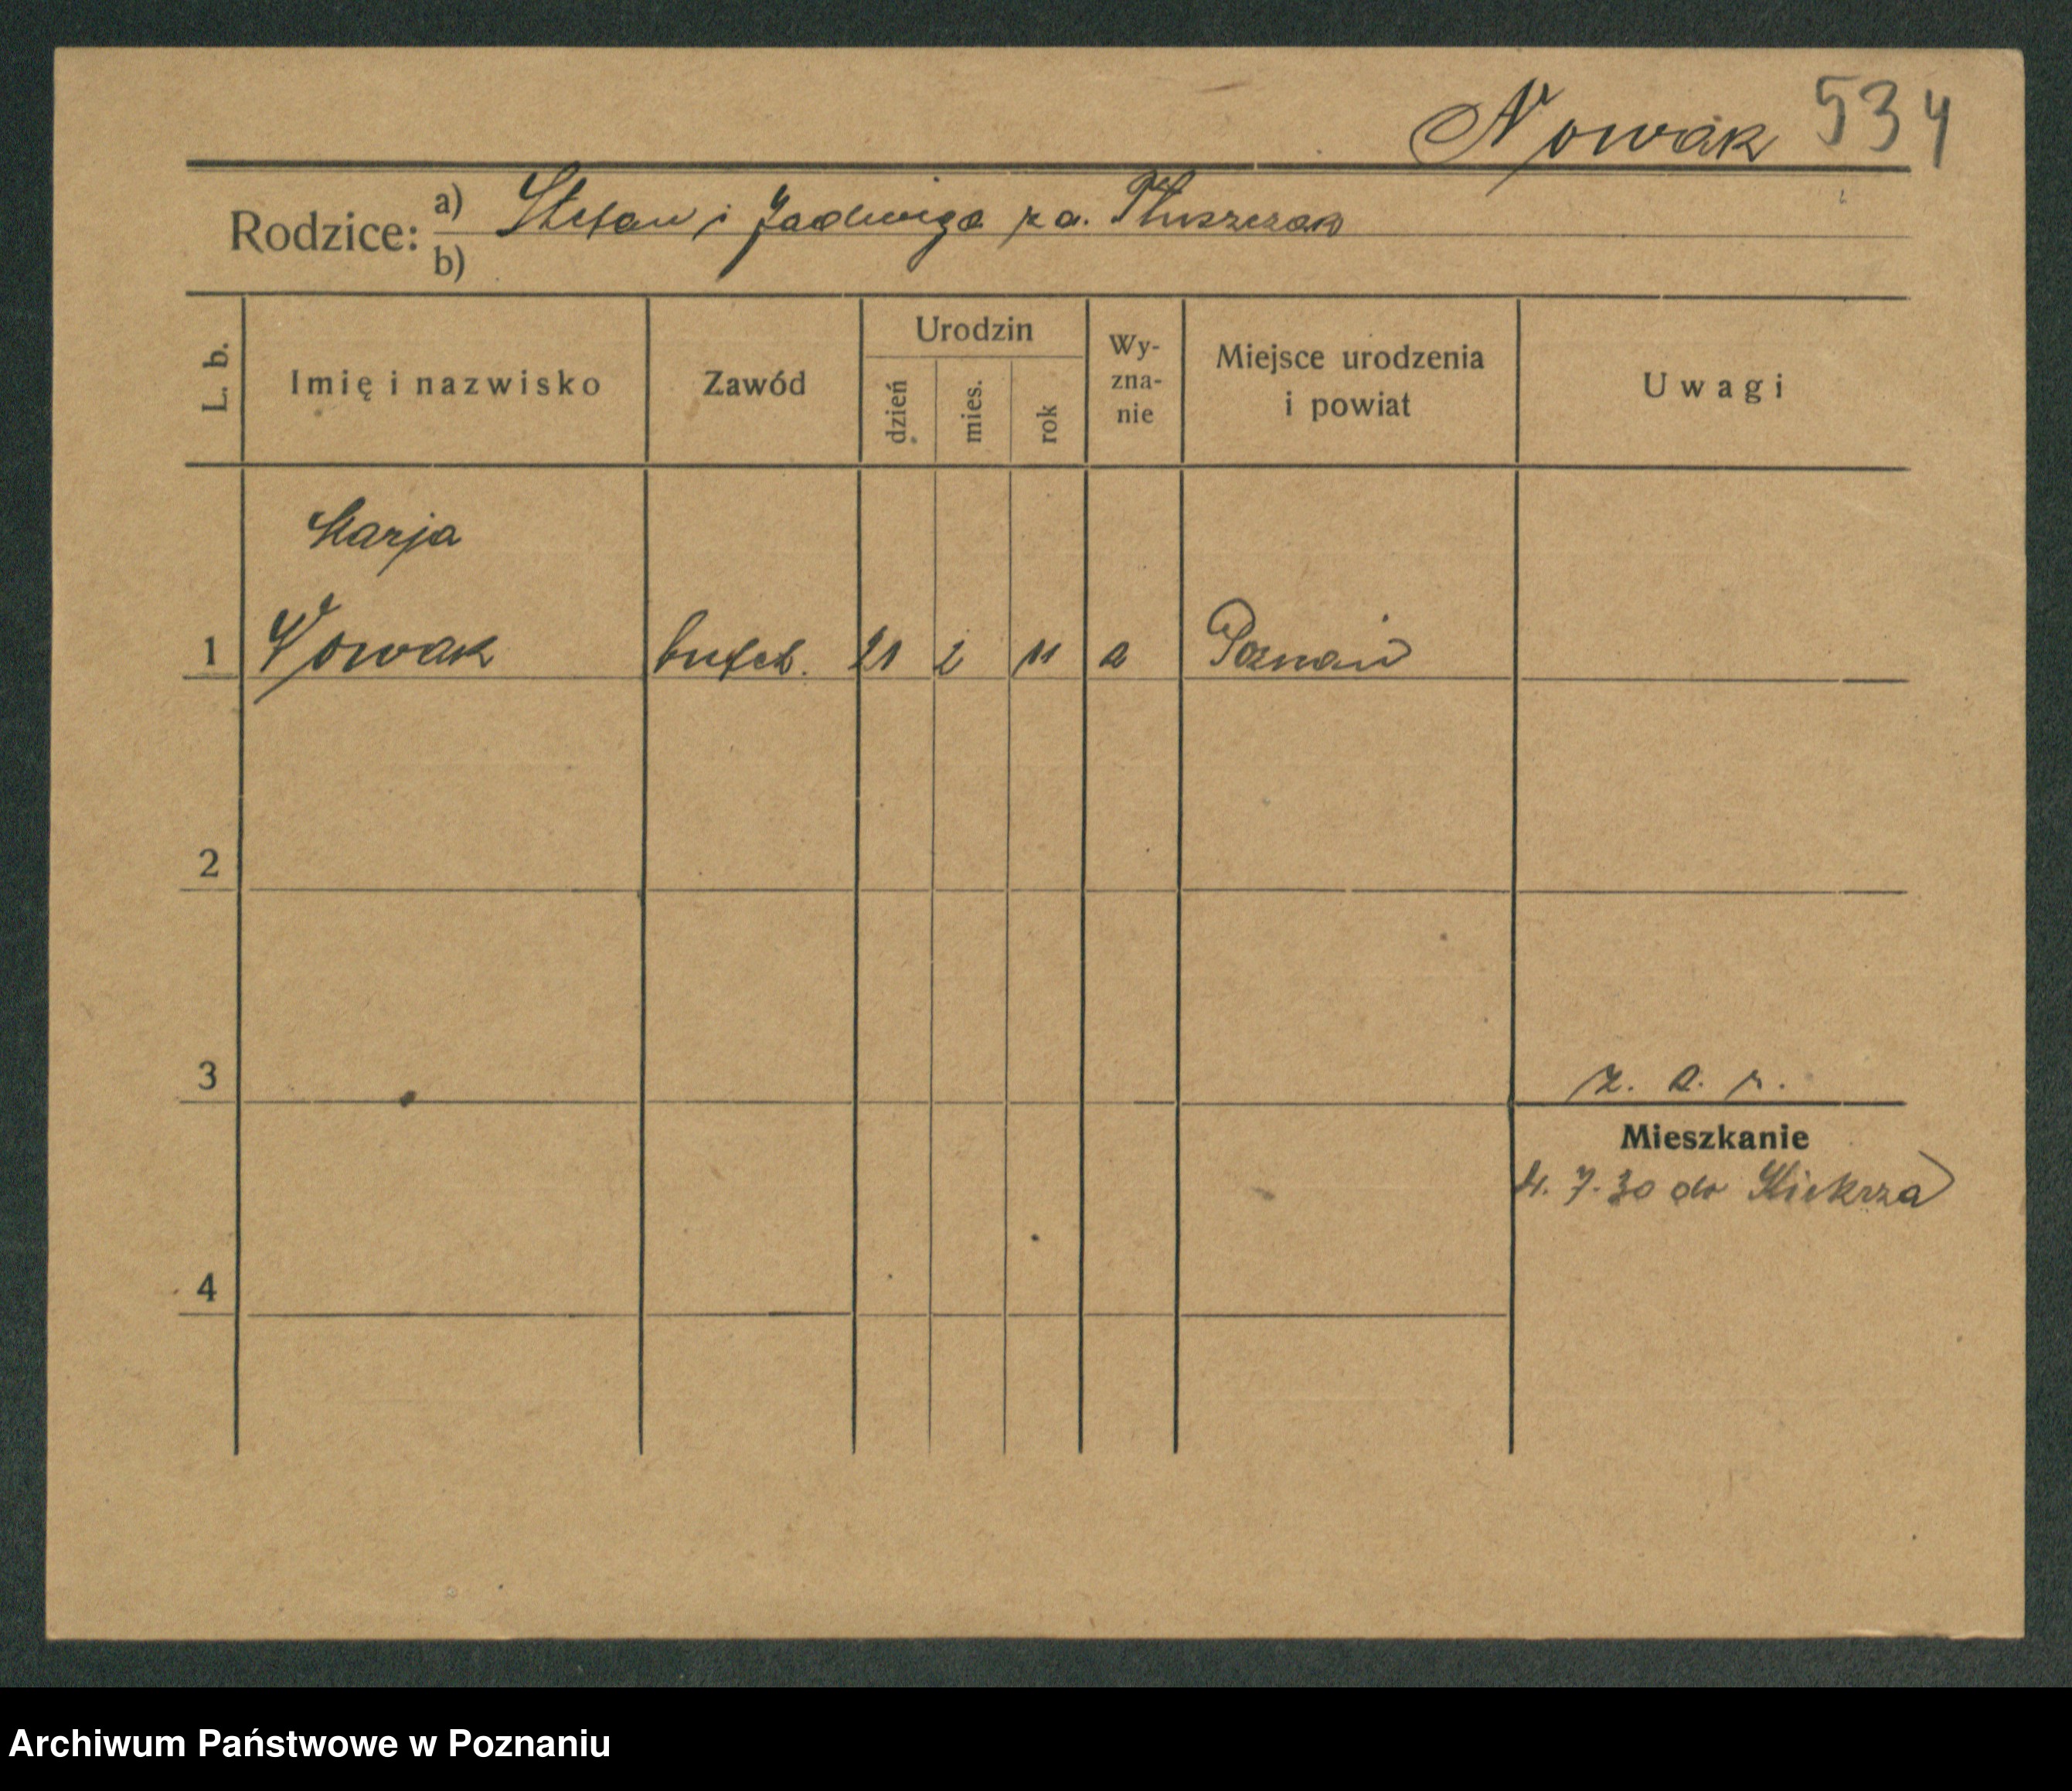 Nowak 534
Rodzice: a) Stefan i Jadwiga z d. Tłuszczak
b)
L. b.
Imię i nazwisko
Zawód
Urodzin
dzień
mies.
rok
Wy-
zna-
nie
Miejsce urodzenia
i powiat
Uwagi
Marja
1 Nowak bufet. 21 2 11 Poznań
2
3
Mieszkanie
4. 7. 30 do Kiekrza
4
Archiwum Państwowe w Poznaniu